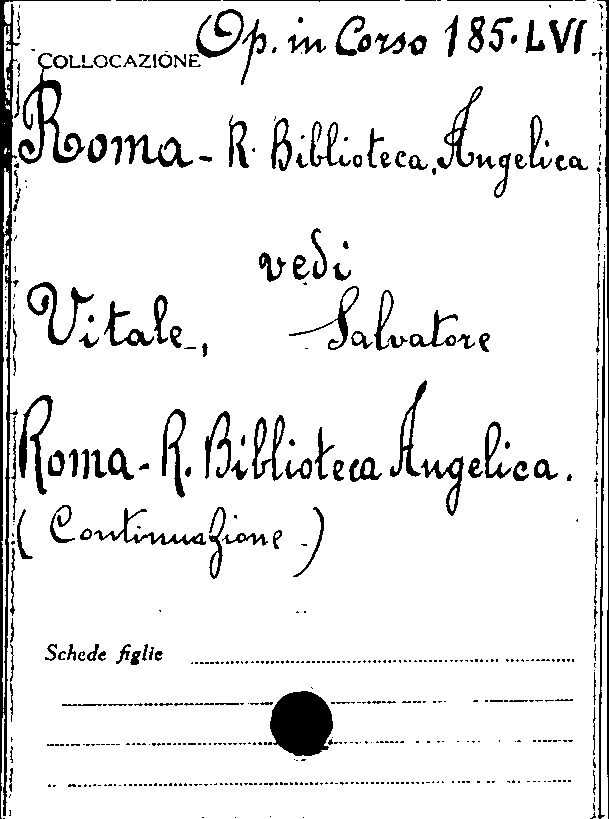 COLLOCAZIONE Op. in Corso 185.LVI.
Roma - R. Biblioteca Angelica
vedi
Vitale, Salvatore
Roma - R. Biblioteca Angelica.
(Continuazione.)
Schede figlie